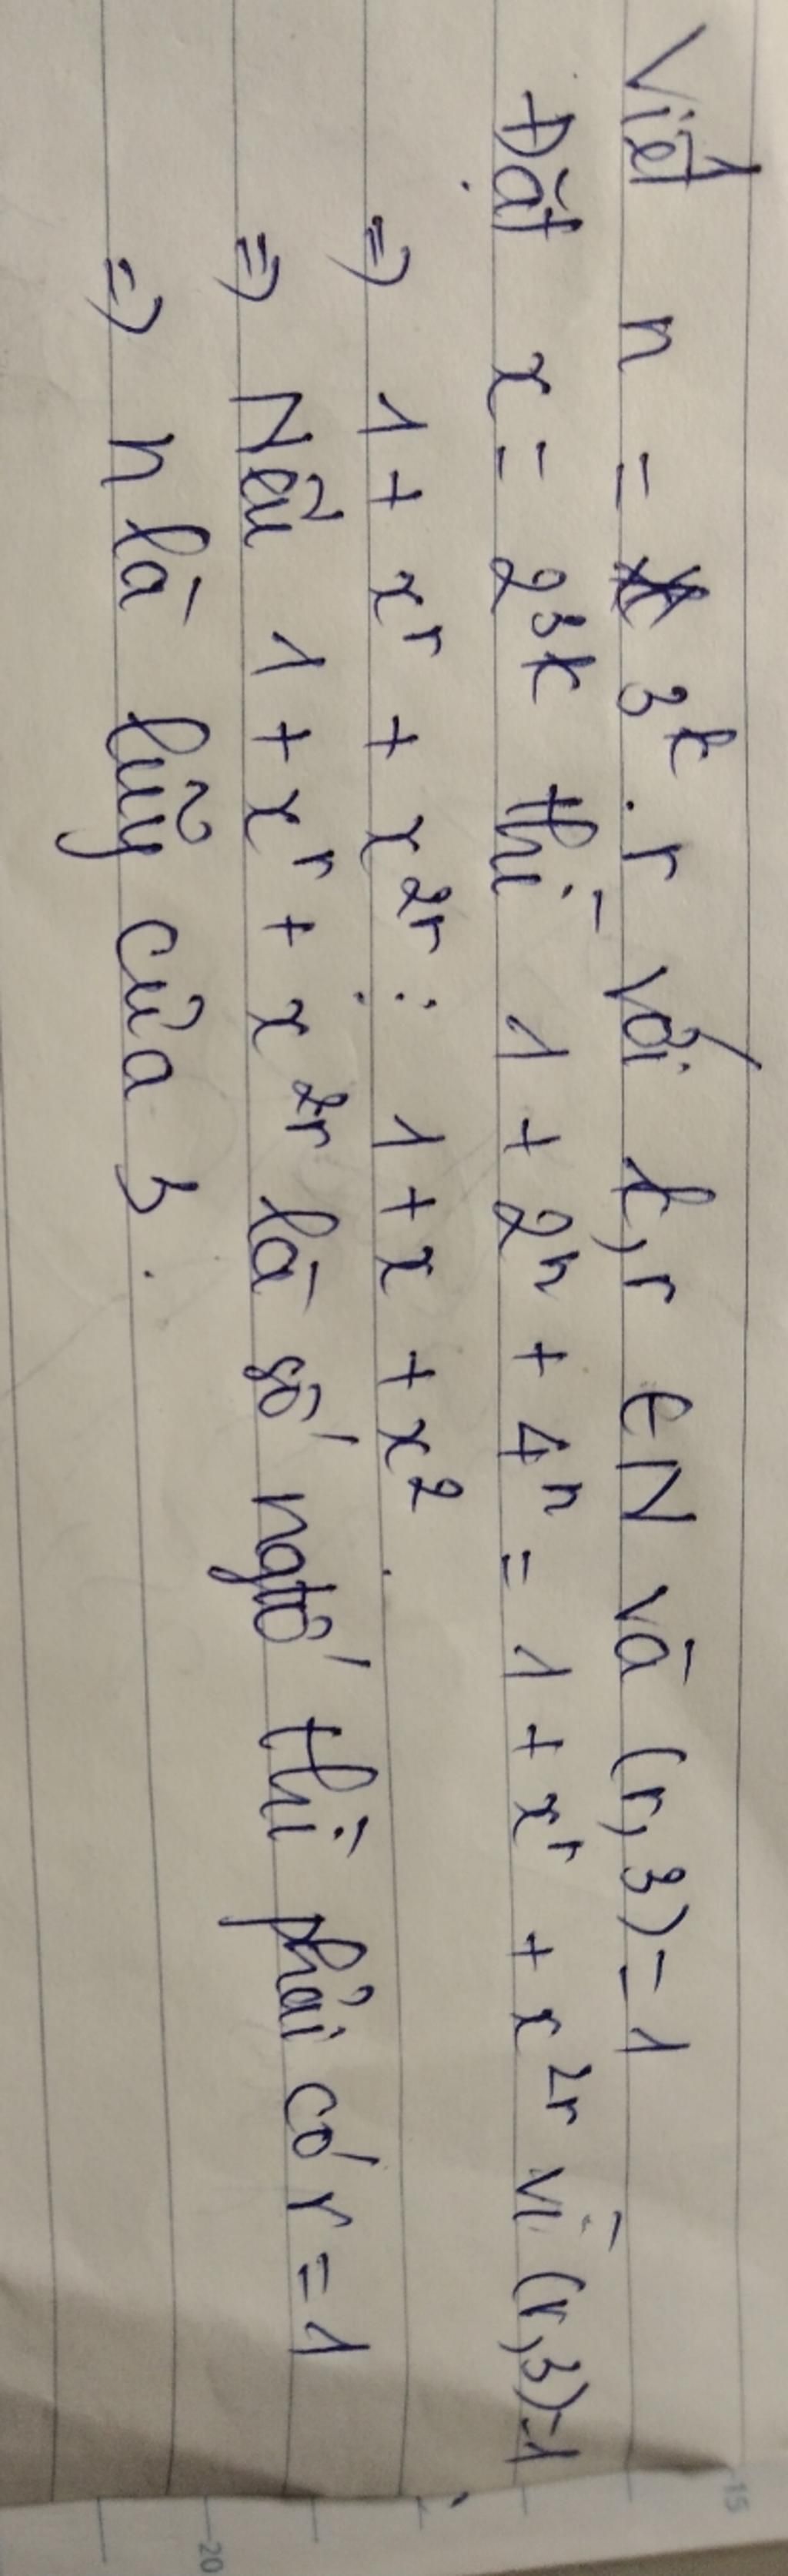 Viết n = 3^k . r với k, r ∈ N và (r, 3) = 1
Đặt x = 2^{3^k} thì 1 + 2^n + 4^n = 1 + x^r + x^{2r} vì (r,3)=1
=> 1 + x^r + x^{2r} ⋮ 1 + x + x^2
=> Nếu 1 + x^r + x^{2r} là số ngtố thì phải có r = 1
=> n là lũy của 3.
15
20